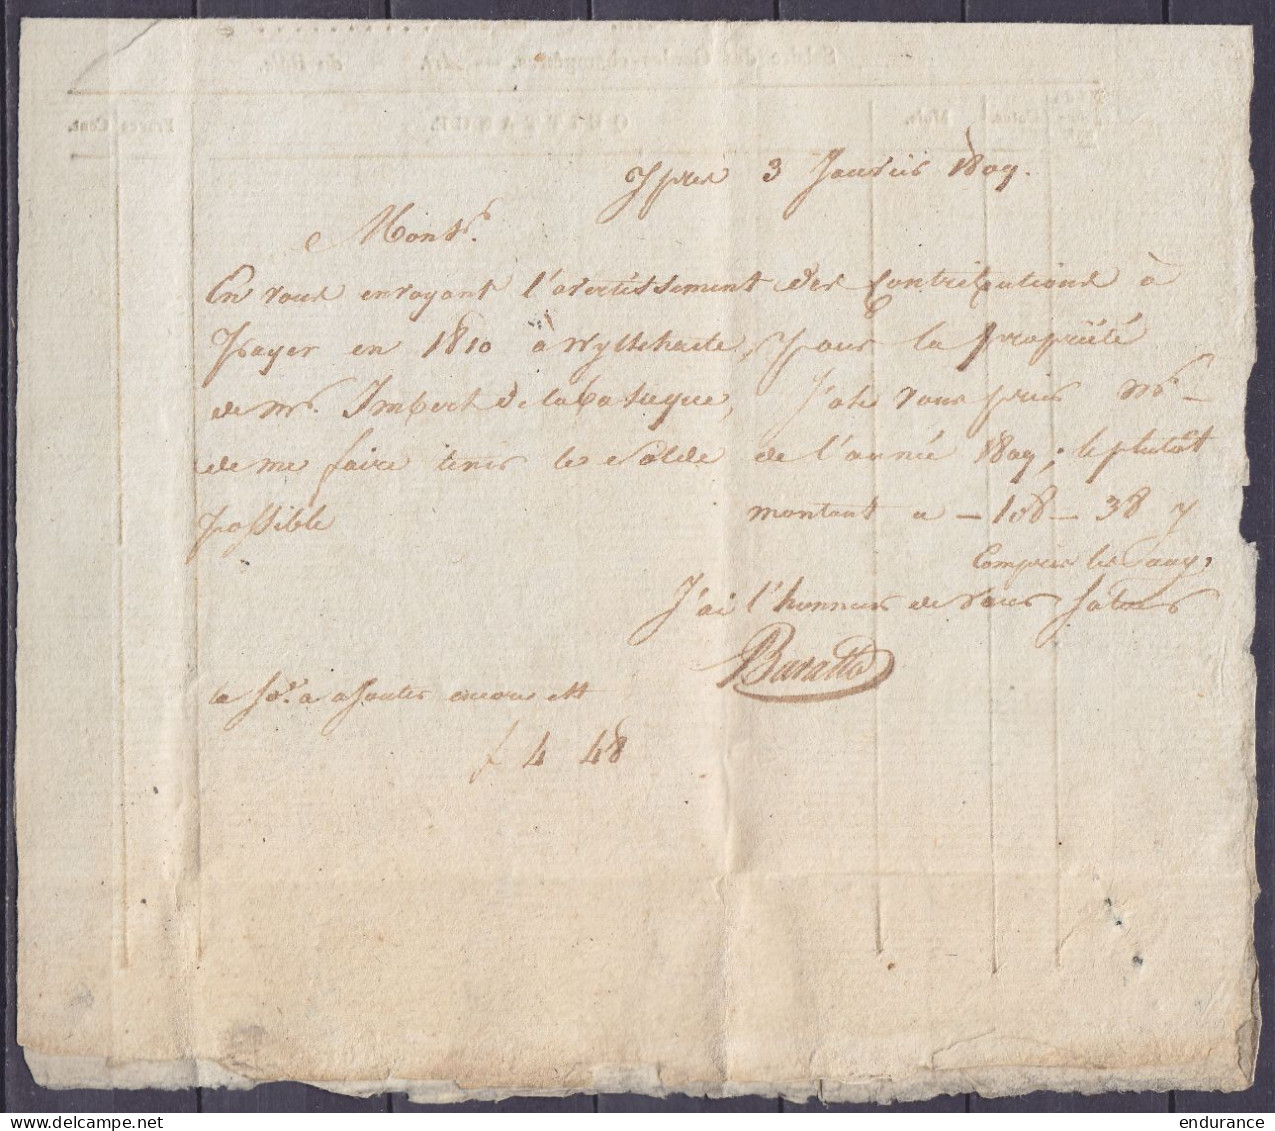 Ypres 3 Janvier 1809.
Monsr.
En vous envoyant l'avertissement des Contributions à
payer en 1810 a Wytschaete, pour la propriété
de Mr. Imbert De la Basecque, vous prier Mr
de me faire tenir le Solde de l'année 1809; le plutôt
possible montant a - 108 - 38 y
Compris les
J'ai l'honneur de vous Saluer
a ajouter encore
f 4 48
endurance